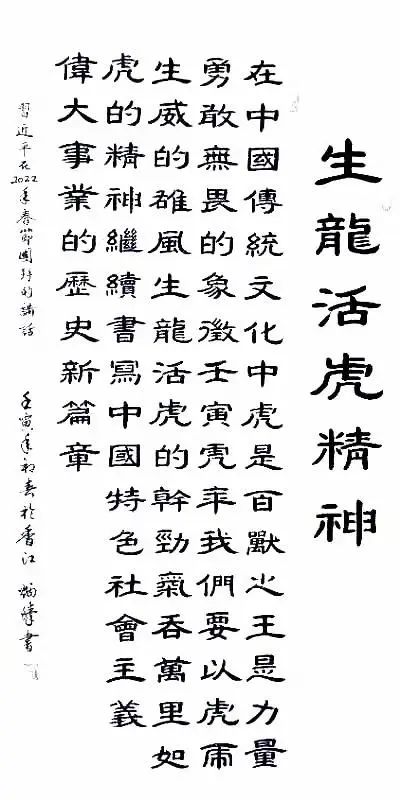 生龍活虎精神
在中國傳統文化中虎是百獸之王是力量
勇敢無畏的象徵壬寅虎年我們要以虎虎
生威的雄風生龍活虎的幹勁氣吞萬里如
虎的精神繼續書寫中國特色社會主義
偉大事業的歷史新篇章
習近平在2022年春節團拜的講話
壬寅年初春於香江 書